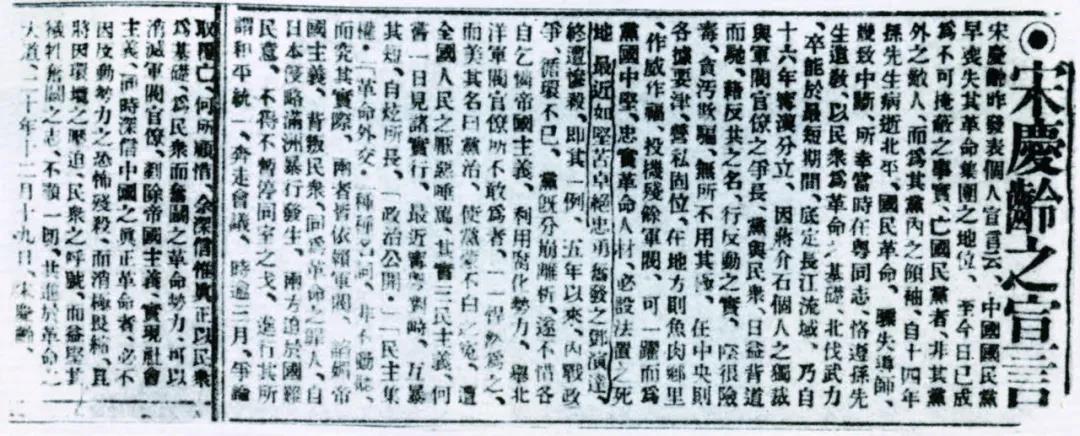 ◉宋慶齡之宣言
宋慶齡昨發表個人宣言云、中國國民黨
早喪失其革命集團之地位、至今日已成
爲不可掩蔽之事實、亡國民黨者、非其黨
外之敵人、而爲其黨內之領袖、自十四年
孫先生病逝北平、國民革命、驟失導師、
幾致中斷、所幸當時在粵同志、恪遵孫先
生遺敎、以民衆爲革命之基礎、北伐武力
、卒能於最短期間、底定長江流域、乃自
十六年寗漢分立、因蔣介石個人之獨裁
與軍閥官僚之爭長、黨與民衆、日益背道
而馳、藉反共之名、行反動之實、陰很險
毒、貪污欺騙、無所不用其極、在中央則
各據要津、營私固位、在地方則魚肉鄉里
、作威作福、投機殘餘軍閥、可一躍而爲
黨國中堅、忠實革命人材、必設法置之死
地、最近如堅苦卓絕忠勇奮發之鄧演達、
終遭慘殺、即其一例、五年以來、內戰政
爭、循環不已、黨旣分崩離析、遂不惜各
自乞憐帝國主義、利用腐化勢力、舉北
洋軍閥官僚所不敢爲者、一一悍然爲之、
而美其名曰黨治、使黨蒙不白之冤、遭
全國人民之厭惡唾罵、其實三民主義、何
嘗一日見諸實行、最近寗粵對峙、互暴
其短、自炫所長、「政治公開」、「民主集
權」、「革命外交」種種名詞、非不動聽、
而究其實際、兩者皆依賴軍閥、諂媚帝
國主義、背叛民衆、同爲革命之罪人、自
日本侵略滿洲暴行發生、兩方迫於國難
民意、不得不暫停同室之戈、進行其所
謂和平統一、奔走會議、時逾三月、爭論
取滅亡、何所顧惜、余深信惟眞正以民衆
爲基礎、爲民衆而奮鬭之革命勢力、可以
消滅軍閥官僚、剷除帝國主義、實現社會
主義、同時深信中國之眞正革命者、必不
因反動勢力之恐怖殘殺、而消極畏縮、且
將因環境之壓迫、民衆之呼號、而益堅其
犧牲奮鬭之志、不顧一切、共進於革命之
大道、二十年十二月十九日、宋慶齡、